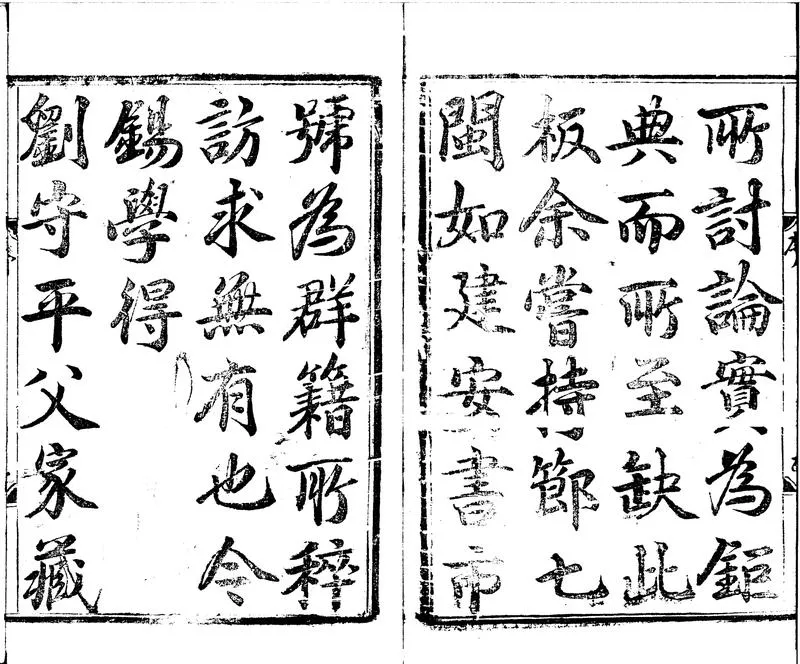 所討論實為鉅
典而所至缺此
板余嘗持節七
閩如建安書市
號為群籍所稡
訪求無有也今
錫學得
劉守平父家藏